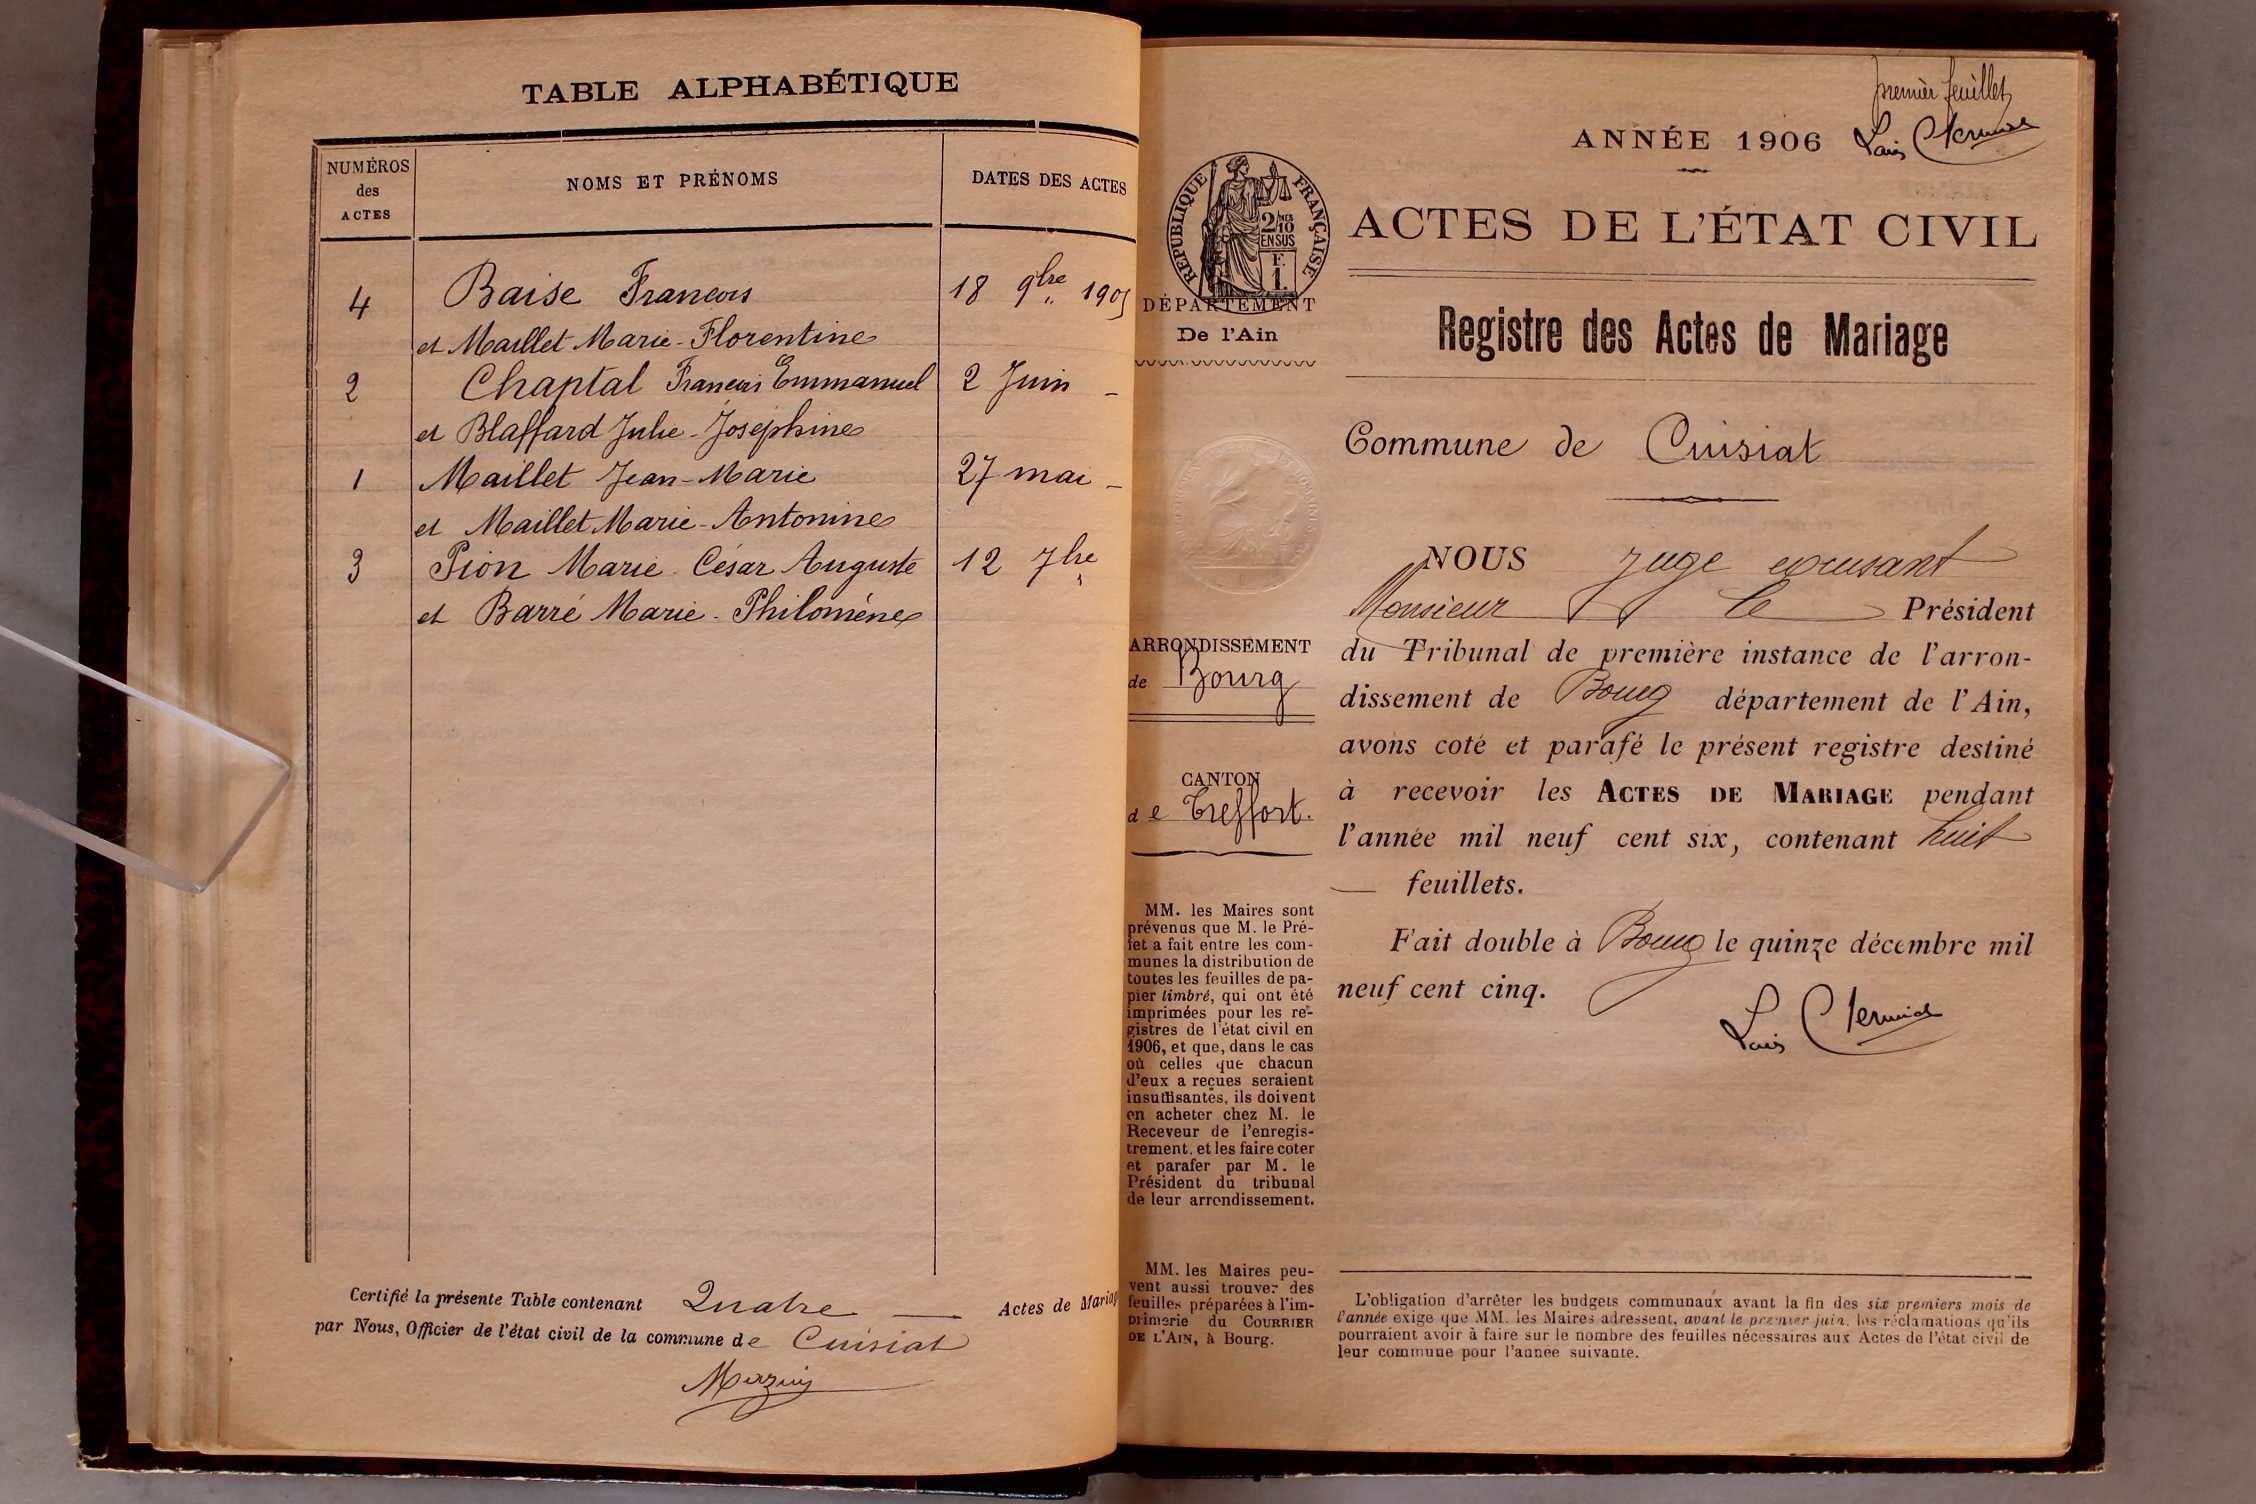 TABLE ALPHABÉTIQUE
NUMÉROS
des
ACTES
NOMS ET PRÉNOMS
DATES DES ACTES
4 Baise Francois 18 9bre 1905
et Maillet Marie-Florentine
2 Chaptal Francois Emmanuel 2 Juin -
et Blaffard Julie-Joséphine
1 Maillet Jean-Marie 27 mai -
et Maillet Marie-Antonine
3 Pion Marie César Auguste 12 7bre
et Barré Marie-Philomène
Certifié la présente Table contenant Quatre — Actes de Mariag
par Nous, Officier de l'état civil de la commune de Cuisiat
premier feuillet
ANNÉE 1906
RÉPUBLIQUE FRANÇAISE
2/10 MES
EN SUS
F.
1.
ACTES DE L'ÉTAT CIVIL
DÉPARTEMENT
De l'Ain
Registre des Actes de Mariage
Commune de Cuisiat
NOUS Juge
Monsieur le Président
du Tribunal de première instance de l'arron-
dissement de Bourg département de l'Ain,
avons coté et parafé le présent registre destiné
à recevoir les ACTES DE MARIAGE pendant
l'année mil neuf cent six, contenant huit
— feuillets.
Fait double à Bourg le quinze décembre mil
neuf cent cinq.
ARRONDISSEMENT
de Bourg
CANTON
de Treffort.
MM. les Maires sont
prévenus que M. le Pré-
fet a fait entre les com-
munes la distribution de
toutes les feuilles de pa-
pier timbré, qui ont été
imprimées pour les re-
gistres de l'état civil en
1906, et que, dans le cas
où celles que chacun
d'eux a reçues seraient
insuffisantes, ils doivent
en acheter chez M. le
Receveur de l'enregis-
trement, et les faire coter
et parafer par M. le
Président du tribunal
de leur arrondissement.
MM. les Maires peu-
vent aussi trouver des
feuilles préparées à l'im-
primerie du COURRIER
DE L'AIN, à Bourg.
L'obligation d'arrêter les budgets communaux avant la fin des six premiers mois de
l'année exige que MM. les Maires adressent, avant le premier juin, les réclamations qu'ils
pourraient avoir à faire sur le nombre des feuilles nécessaires aux Actes de l'état civil de
leur commune pour l'année suivante.